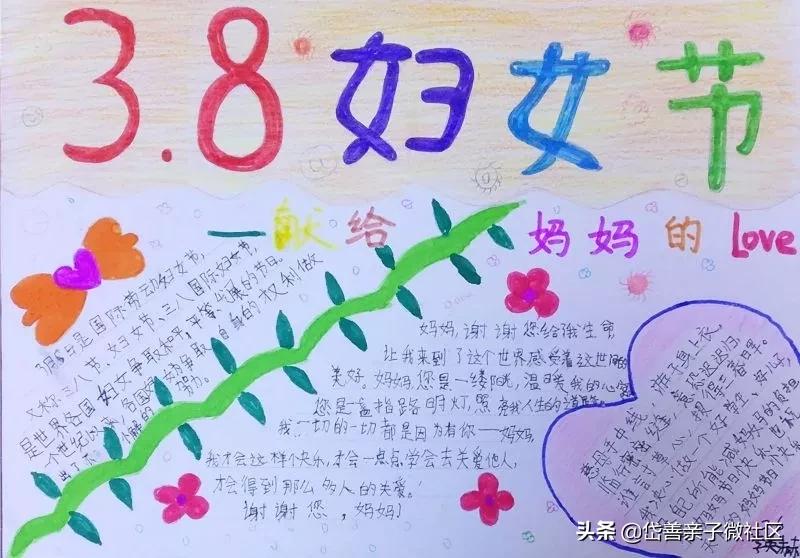 3.8妇女节
一献给妈妈的Love
3月8日是国际劳动妇女节,
又称三八节、妇女节、三八国际妇女节,
是世界各国妇女争取和平,平等,发展的节日。
个世纪以来,各国 争取自身的权利做
出了不 的努力。
妈妈,谢谢您给我生命
让我来到了这个世界感受着这世间的
美好。妈妈,您是一缕阳光,温暖我的心窝
您是一盏指路明灯,照亮我人生的道路。
我一切的一切都是因为有你——妈妈,
我才会这样个快乐,才会一点点学会去关爱他人,
才会得到那么多人的关爱。
谢谢您,妈妈!
慈母手中线,游子身上衣。
临行密密缝,意恐迟迟归。
谁言寸草心,报得三春晖。
我决心做一个好学生,好
妈妈节日快乐
头条@岱善亲子微社区